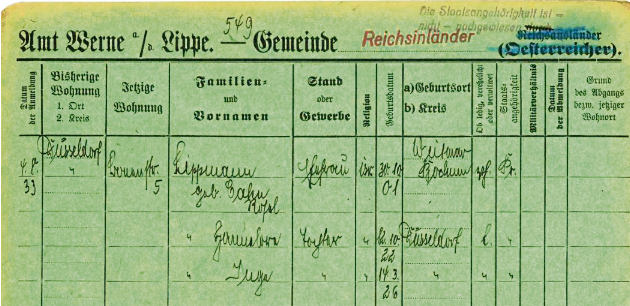 Die Staatsangehörigkeit ist
nicht - nachgewiesen durch
549
Amt Werne a/d. Lippe. Gemeinde Reichsinländer Reichsausländer
(Oesterreicher).
Datum der Anmeldung
Bisherige Wohnung 1. Ort 2. Kreis
Jetzige Wohnung
Familien- und Vornamen
Stand oder Gewerbe
Religion
Geburtsdatum
a) Geburtsort b) Kreis
Ob ledig, verehelicht oder verwitwet
Staatsangehörigkeit
Militärverhältnis
Datum der Abmeldung
Grund des Abgangs bezw. jetziger Wohnort
Düsseldorf Weitmar
4. 9. " Lippmann Ehefrau isr. 30. 10. Bochum vh. Pr.
33 5 geb. Kahn 01
Rosel
" Hannelore Tochter " 12. 10. Düsseldorf l. "
22
" Inge " " 14 3. " " "
26